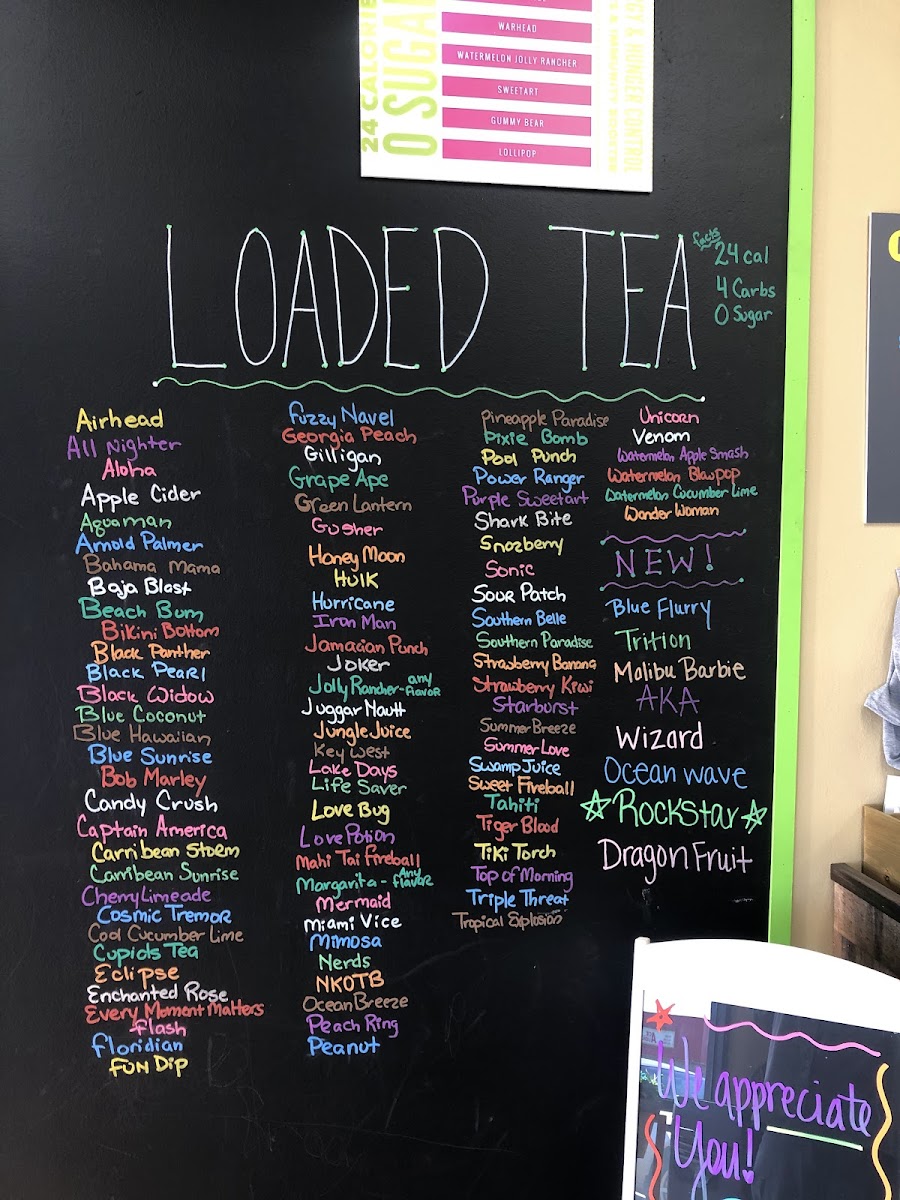 24 CALORIE
0 SUGA
WARHEAD
WATERMELON JOLLY RANCHER
SWEETART
GUMMY BEAR
LOLLIPOP
GY & HUNGER CONTROL
LOADED TEA
facts
24 cal
4 Carbs
0 Sugar
Airhead
All Nighter
Aloha
Apple Cider
Aquaman
Arnold Palmer
Bahama Mama
Baja Blast
Beach Bum
Bikini Bottom
Black Panther
Black Pearl
Black Widow
Blue Coconut
Blue Hawaiian
Blue Sunrise
Bob Marley
Candy Crush
Captain America
Carribean Storm
Carribean Sunrise
Cherry Limeade
Cosmic Tremor
Cool Cucumber Lime
Cupids Tea
Eclipse
Enchanted Rose
Every Moment Matters
Flash
Floridian
Fun Dip
Fuzzy Navel
Georgia Peach
Gilligan
Grape Ape
Green Lantern
Gusher
Honey Moon
Hulk
Hurricane
Iron Man
Jamacian Punch
Joker
Jolly Rancher - any flavor
Juggar Nautt
Jungle Juice
Key West
Lake Days
Life Saver
Love Bug
Love Potion
Mahi Tai Fireball
Margarita - Any flavor
Mermaid
Miami Vice
Mimosa
Nerds
NKOTB
Ocean Breeze
Peach Ring
Peanut
Pineapple Paradise
Pixie Bomb
Pool Punch
Power Ranger
Purple Sweetart
Shark Bite
Snozberry
Sonic
Sour Patch
Southern Belle
Southern Paradise
Strawberry Banana
Strawberry Kiwi
Starburst
Summer Breeze
Summer Love
Swamp Juice
Sweet Fireball
Tahiti
Tiger Blood
Tiki Torch
Top of Morning
Triple Threat
Tropical Explosion
Unicorn
Venom
Watermelon Apple Smash
Watermelon Blowpop
Watermelon Cucumber Lime
Wonder Woman
NEW!
Blue Flurry
Trition
Malibu Barbie
AKA
Wizard
Ocean wave
Rockstar
Dragon Fruit
We appreciate
You!